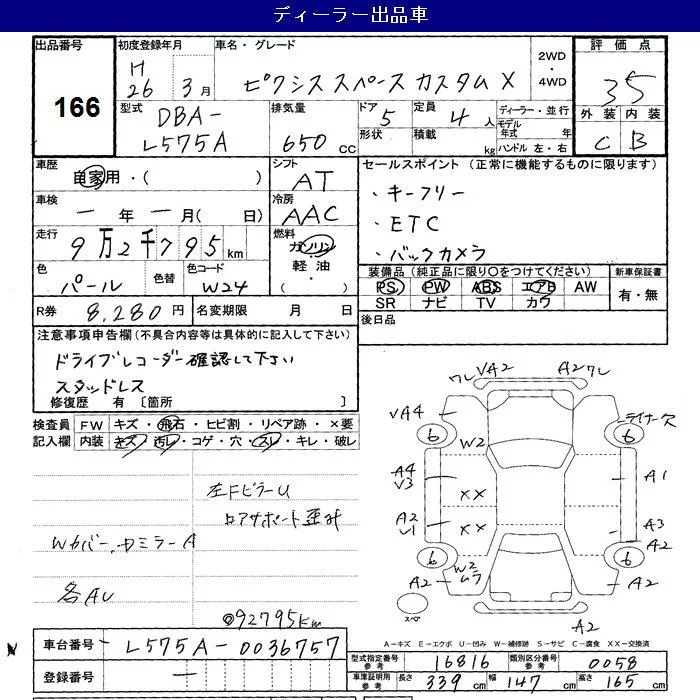 ディーラー出品車
出品番号
166
初度登録年月
H
26 3月
車名・グレード
ピクシススペースカスタムX
2WD
・
4WD
評価点
35
外装 内装
C B
型式
DBA-
L575A
排気量
650 cc
ドア
5
形状
定員
4 人
積載
kg
ディーラー・並行
モデル
年式 年
ハンドル 左・右
車歴
自家用・( )
シフト
AT
セールスポイント (正常に機能するものに限ります)
・キーフリー
・ETC
・バックカメラ
車検
一年一月( 日)
冷房
AAC
走行
9万2千795km
燃料
ガソリン
軽油
( )
色
パール
色替
色コード
W24
装備品 (純正品に限り○をつけてください)
PS PW ABS エアB AW
SR ナビ TV カワ
新車保証書
有・無
R券 8,280円
名変期限 月 日
後日品
注意事項申告欄(不具合内容等は具体的に記入して下さい)
ドライブレコーダー確認して下さい
スタッドレス
修復歴 有〔箇所 〕
検査員 FW キズ・飛石・ヒビ割・リペア跡・×要
記入欄 内装 キズ・汚レ・コゲ・穴・スレ・キレ・破レ
左FピラーU
ロアサポート歪み
Wカバー、ドミラーA
各AU
◎92795km
ワレ VA2 A2 ワレ
VA4
ライナー欠
6 6
W2
A4
V3
A1
XX
A2
V1
XX
A3
A2
6 6
W2
ムラ
A2 A2
スペア
A2
A-キズ E-エクボ U-凹み W-補修跡 S-サビ C-腐食 XX-交換済
車台番号 L575A-0036757
登録番号 一
型式指定番号
参考
16816
類別区分番号
参考
0058
車庫証明用
参考
長さ 339 cm 幅 147 cm 高さ 165 cm